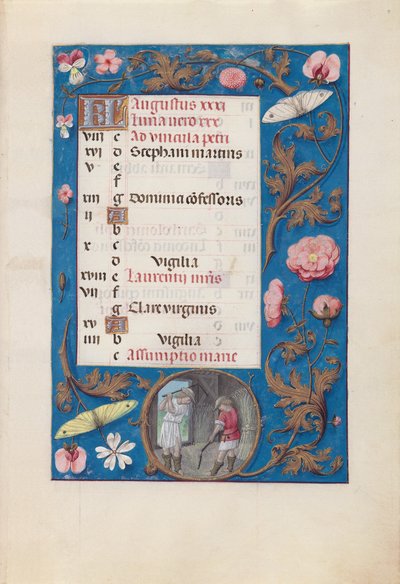 KL Augustus xxxi
Luna vero xxx
viii c Ad vincula petri
xvi d Stephani martiris
v e
f
xiii g Dominici cōfessoris
ii A
b
x c
d Vigilia
xviii e Laurentii m̄ris
vii f
g Clare virginis
xv A
iiii b Vigilia
c Assumptio marie